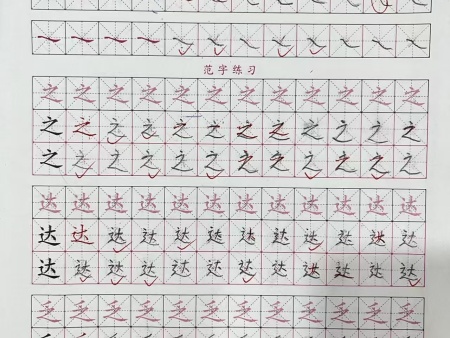 范字练习
之 之 之 之 之 之 之 之 之 之 之 之
之 之 之 之 之 之 之 之 之 之 之 之
之 之 之 之 之 之 之 之 之 之 之 之
达 达 达 达 达 达 达 达 达 达 达 达
达 达 达 达 达 达 达 达 达 达 达 达
达 达 达 达 达 达 达 达 达 达 达 达
乏 乏 乏 乏 乏 乏 乏 乏 乏 乏 乏 乏